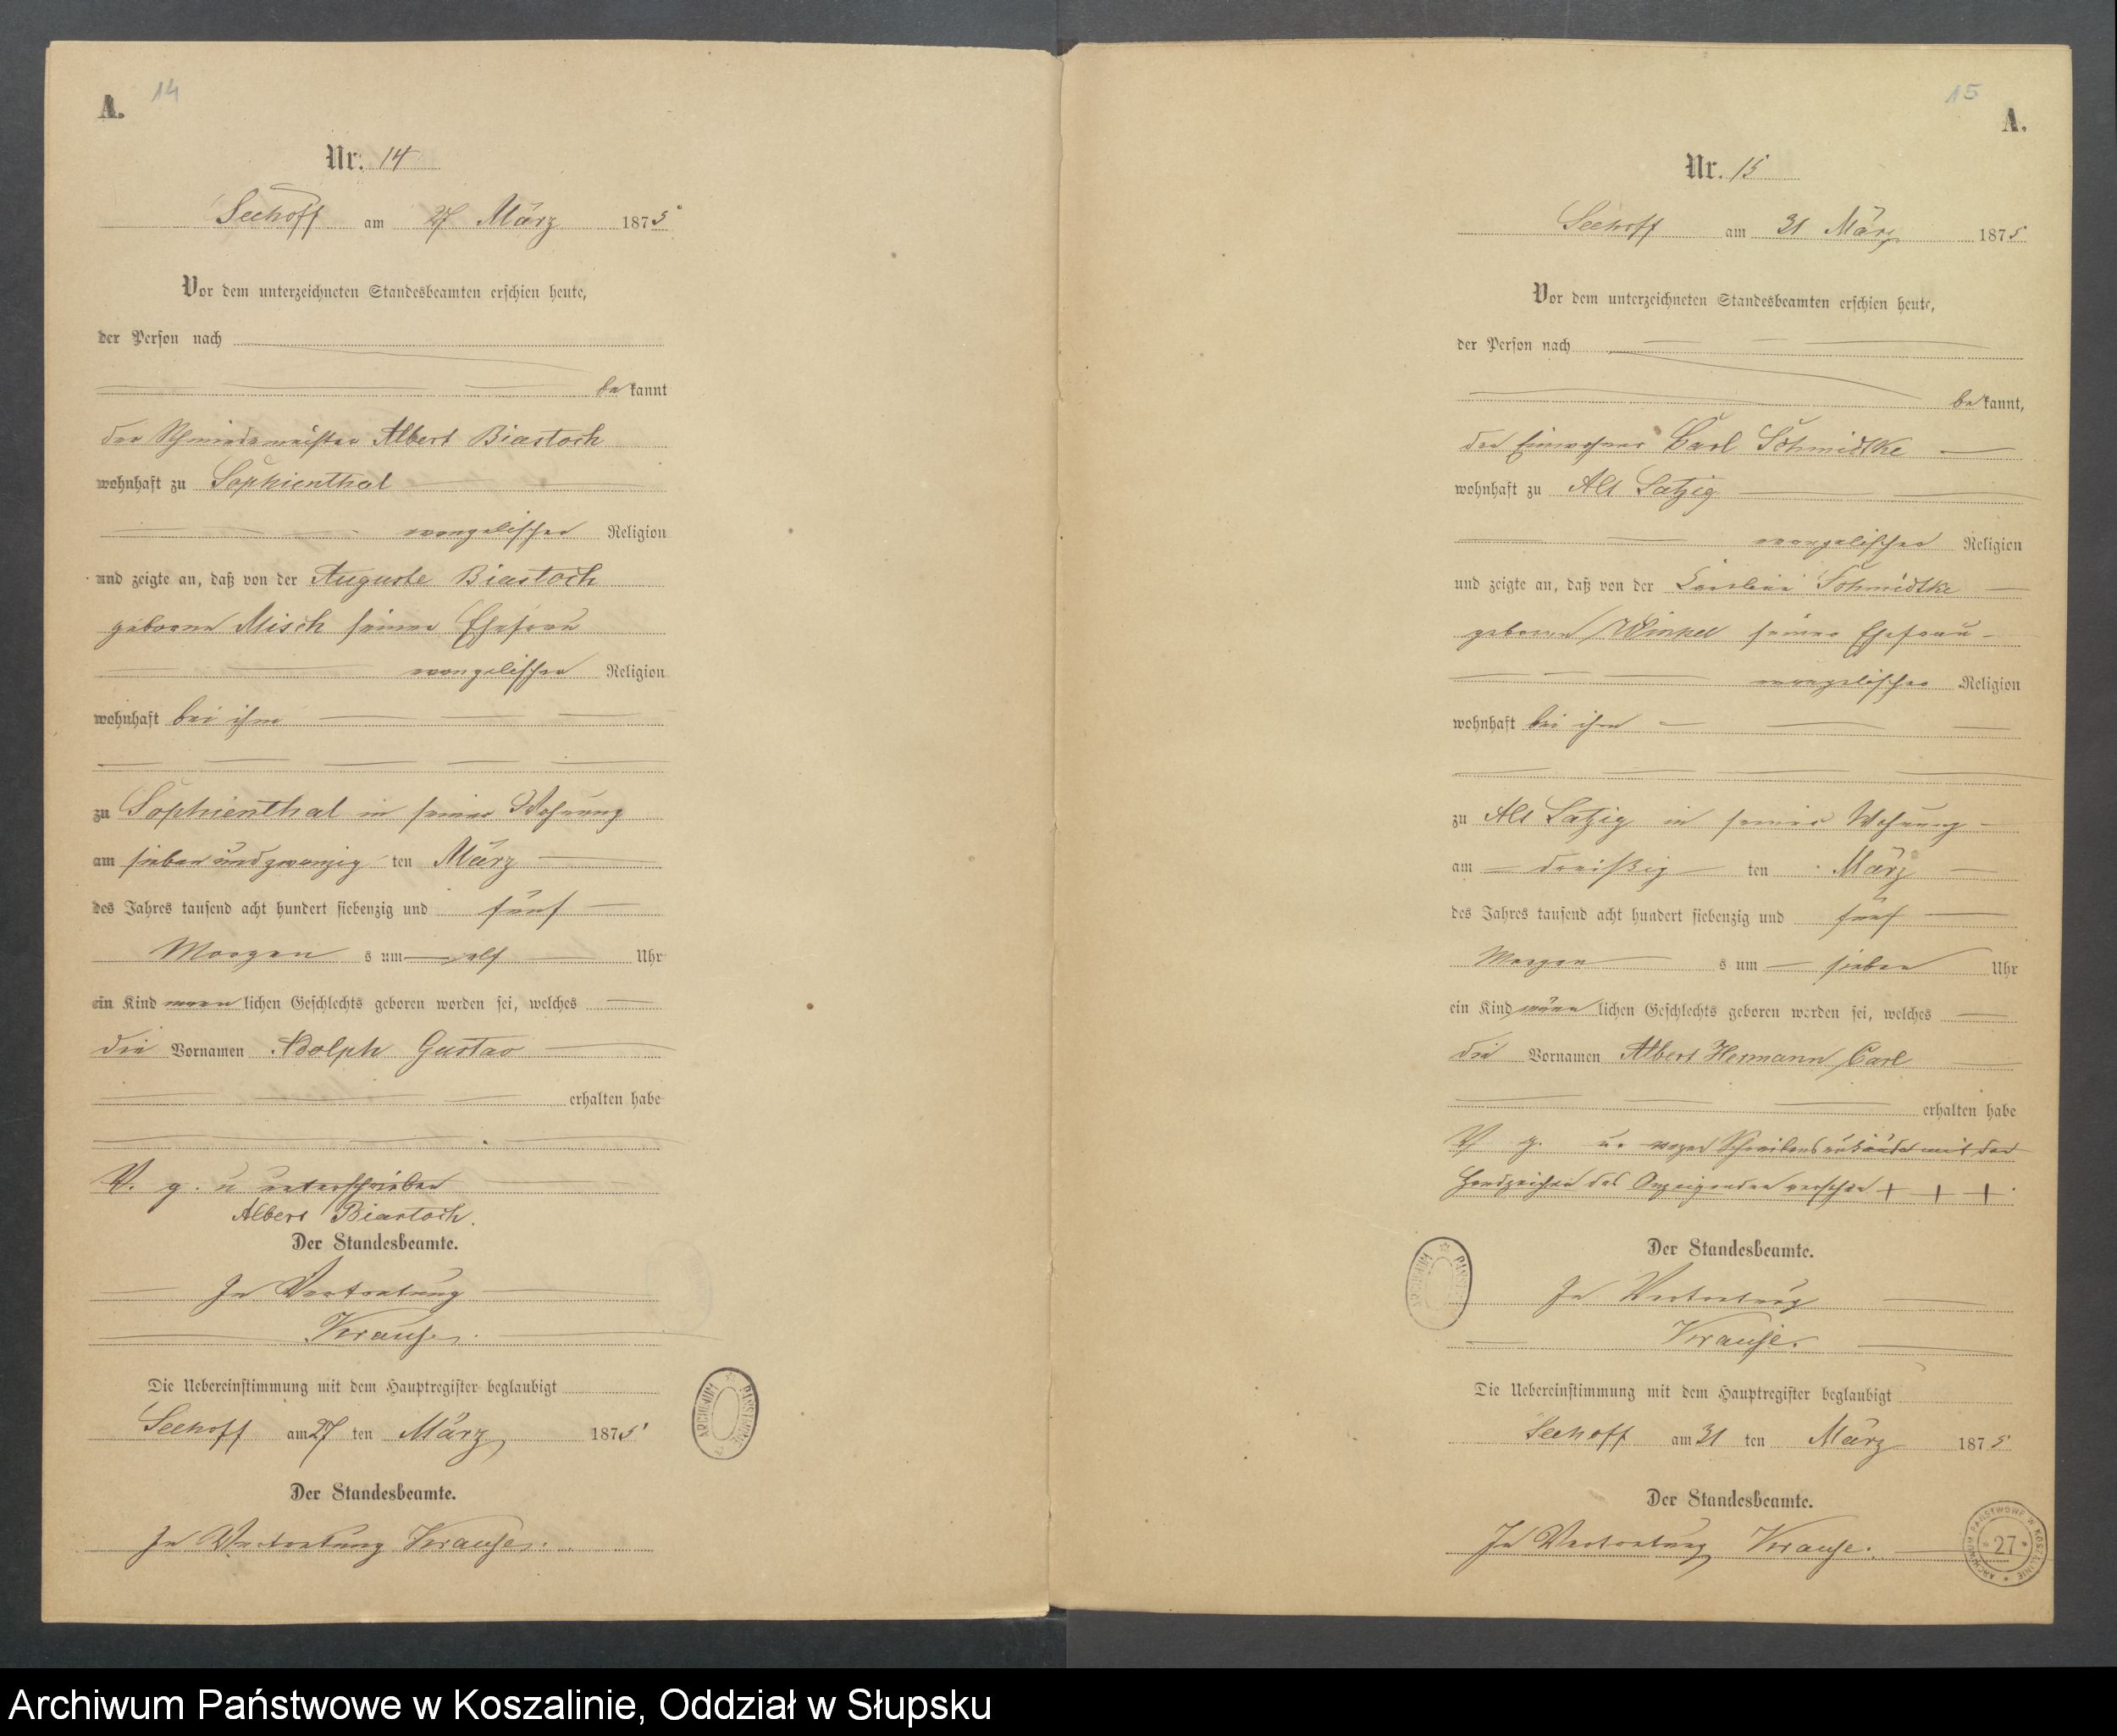 14
A.
Nr. 14
Seehoff am 27 März 1875
Vor dem unterzeichneten Standesbeamten erschien heute,
der Person nach
bekannt
der Schmiedemeister Albert Biastoch
wohnhaft zu Sophienthal
evangelischer Religion
und zeigte an, daß von der Auguste Biastoch
geborene Misch seiner Ehefrau
evangelischer Religion
wohnhaft bei ihm
zu Sophienthal in seiner Wohnung
am sieben und zwanzig ten März
des Jahres tausend acht hundert siebenzig und fünf
Morgens um elf Uhr
ein Kind männlichen Geschlechts geboren worden sei, welches
die Vornamen Adolph Gustav
erhalten habe
V. g. u unterschrieben
Albert Biastoch.
Der Standesbeamte.
In Vertretung
Krause.
Die Uebereinstimmung mit dem Hauptregister beglaubigt
Seehoff am 27 ten März 1875
Der Standesbeamte.
In Vertretung Krause.
ARCHIWUM PAŃSTWOWE
15
A.
Nr. 15
Seehoff am 31 März 1875
Vor dem unterzeichneten Standesbeamten erschien heute,
der Person nach
bekannt,
der Einwohner Carl Schmidtke
wohnhaft zu Alt Satzig
evangelischer Religion
und zeigte an, daß von der Karoline Schmidtke
geborene Winkel seiner Ehefrau
evangelischer Religion
wohnhaft bei ihm
zu Alt Satzig in seiner Wohnung
am dreißig ten März
des Jahres tausend acht hundert siebenzig und fünf
Morgens um sieben Uhr
ein Kind männlichen Geschlechts geboren worden sei, welches
die Vornamen Albert Hermann Carl
erhalten habe
V. g. u. wegen Schreibensunkunde mit dem
Handzeichen des Anzeigenden versehen + + +
Der Standesbeamte.
In Vertretung
Krause.
Die Uebereinstimmung mit dem Hauptregister beglaubigt
Seehoff am 31 ten März 1875
Der Standesbeamte.
In Vertretung Krause.
ARCHIWUM PAŃSTWOWE W KOSZALINIE
27
Archiwum Państwowe w Koszalinie, Oddział w Słupsku